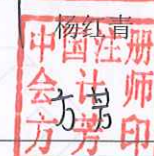 杨红青
中国注册
会计师
方芳印
方芳